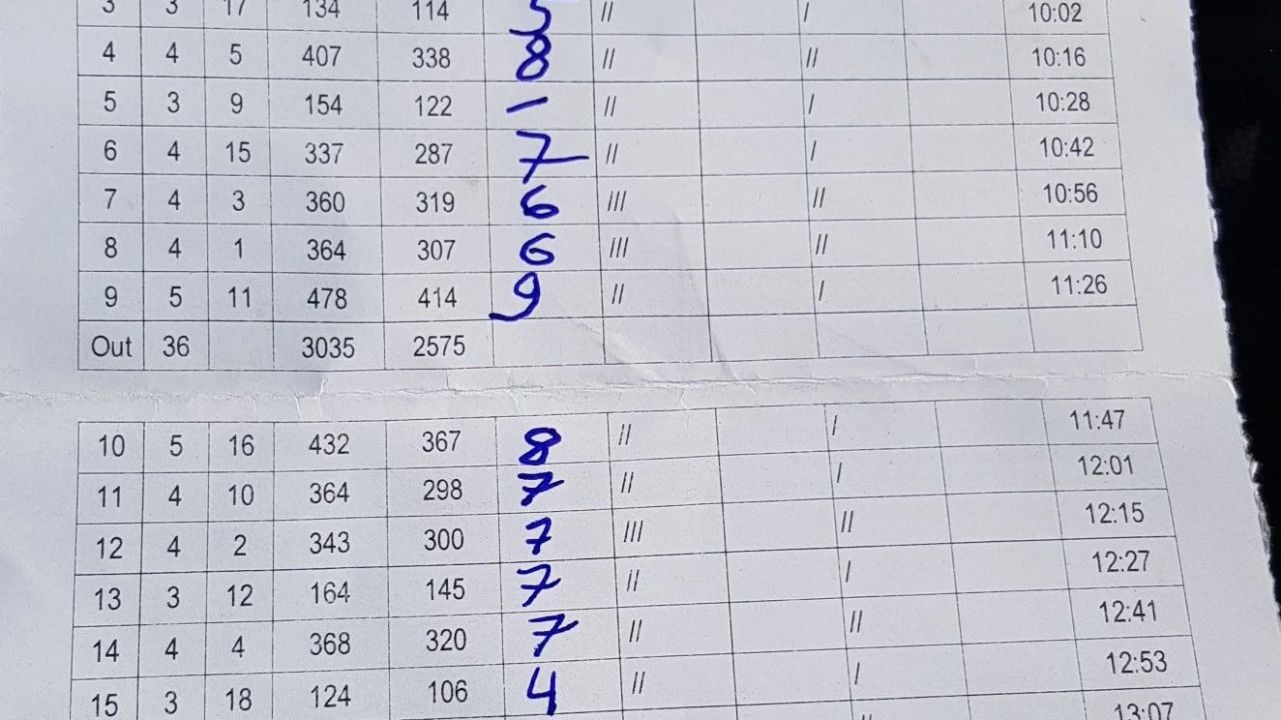 3 3 17 134 114 5 // / 10:02
4 4 5 407 338 8 // // 10:16
5 3 9 154 122 – // / 10:28
6 4 15 337 287 7 // / 10:42
7 4 3 360 319 6 /// // 10:56
8 4 1 364 307 6 /// // 11:10
9 5 11 478 414 9 // / 11:26
Out 36 3035 2575
10 5 16 432 367 8 // / 11:47
11 4 10 364 298 7 // / 12:01
12 4 2 343 300 7 /// // 12:15
13 3 12 164 145 7 // / 12:27
14 4 4 368 320 7 // // 12:41
15 3 18 124 106 4 // / 12:53
// 13:07